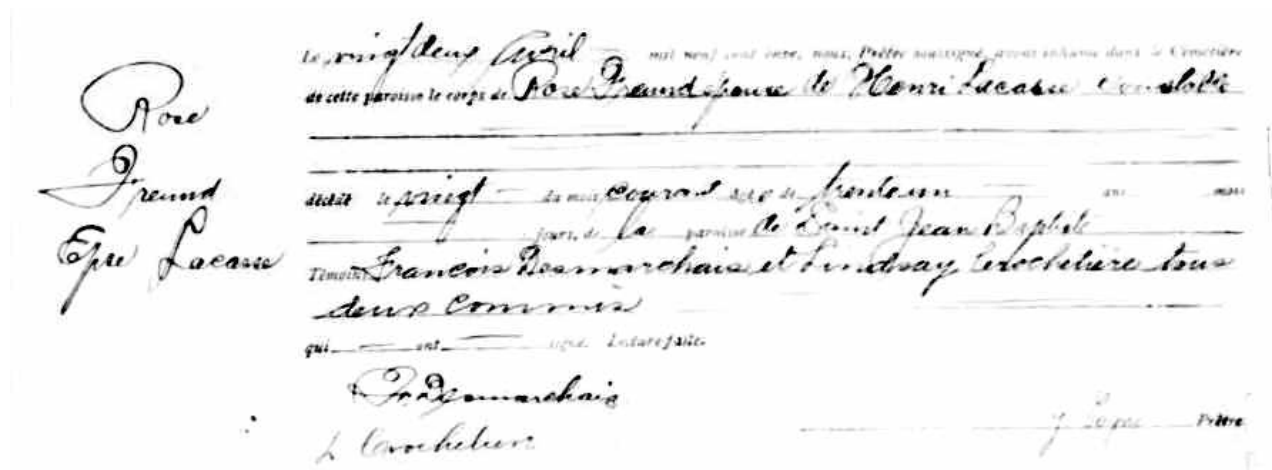 Rose
Freund
Epse Lacasse
Le vingt deux Avril mil neuf cent onze, nous, Prêtre soussigné, avons inhumé dans le Cimetière
de cette paroisse le corps de Rose Freund épouse de Henri Lacasse Constable
décédé le vingt du mois courant âgé de trente un ans mois
jours, de la paroisse de Saint Jean Baptiste
Témoins François Desmarchais et Lindsay Crochetière tous
deux commis
qui ont signé. Lecture faite.
Fr. Desmarchais
L Crochetière
Prêtre